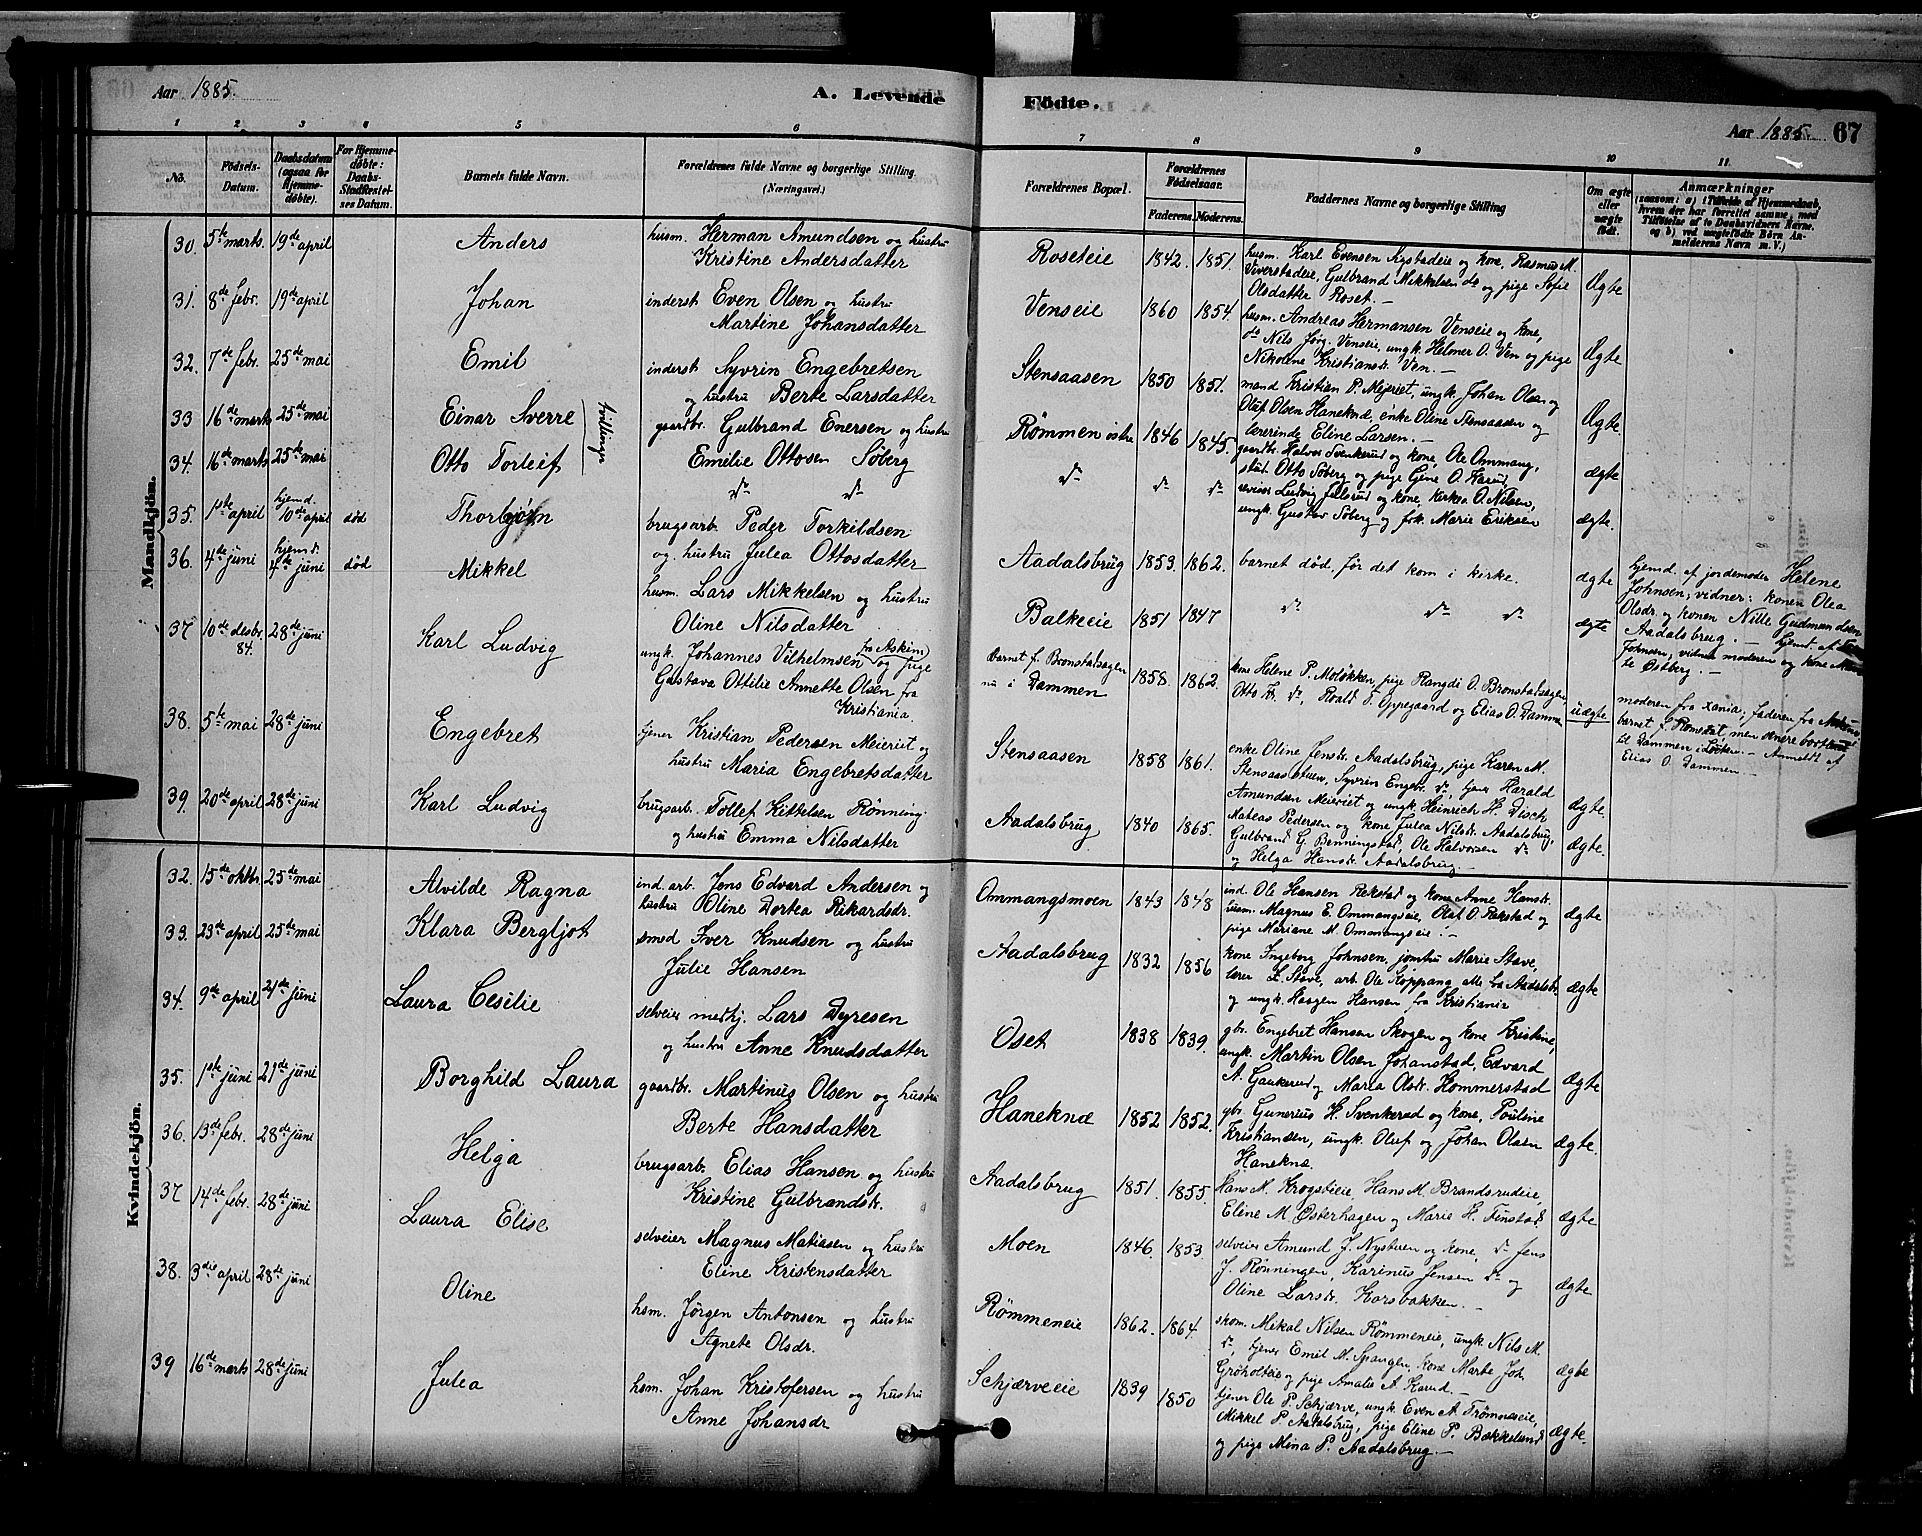 Aar 1885.
A. Levende
Födte.
Aar 1885. 67
1 2 3 4 5 6 7 8 9 10 11
No. Fødsels-Datum. Daabsdatum (ogsaa for Hjemmedøbte). For Hjemmedøbte: Daabs-Stadfæstelses Datum. Barnets fulde Navn. Forældrenes fulde Navne og borgerlige Stilling. (Næringsvei.)
Forældrenes Bopæl. Forældrenes Fødselsaar. Faderens. Moderens. Faddernes Navne og borgerlige Stilling Om ægte eller uægte født. Anmærkninger (saasom: a) i Tilfælde af Hjemmedaab, hvem der har forrettet samme, med Tilføielse af to Daabsvidners Navne, og b) ved uægtefødte Børn Anmelderens Navn m. V.)
Mandkjön.
30. 5te marts. 19de april Anders husm. Herman Amundsen og hustru
Kristine Andersdatter
Roseteie 1842. 1851. husm. Karl Evensen Nystadeie og kone, Rasmus M.
Viverstadeie, Gulbrand Mikkelsen do og pige Sofie
Olsdatter Roset. Ægte
31. 8de febr. 19de april Johan inderst Even Olsen og hustru
Martine Johansdatter
Venseie 1860 1854. husm. Andreas Hermansen Venseie og kone,
do Nils Jörg. Venseie, ungk. Helmer O. Ven og pige
Nikoline Kristiansdr. Ven. Ægte
32. 7de febr. 25de mai Emil inderst Syvrin Engebretsen
og hustru Berte Larsdatter
Stensaasen 1850 1851. mand Kristian P. Mejeriet, ungk. Johan Olsen og
Oluf Olsen Haneknæ, enke Oline Stensaasen og
lærerinde Eline Larsen. Ægte.
33 16de marts 25de mai Einar Sverre tvillinger gaardbr. Gulbrand Enersen og hustru
Emilie Ottosen Söberg
Rømmen östre 1846 1845. gaardbr. Halvor Svenkerud og kone, Ole Ommang,
stud. Otto Söberg og pige Gjene O. Karud, ægte
34. 16de marts 25de mai Otto Torleif do do
do do do revisor Ludvig Julsrud og kone, kirkes. O. Nilsen,
ungk. Gustav Söberg og frk. Marie Eriksen ægte.
35. 1ste april hjemd. 10de april död Thorbjørn brugsarb. Peder Torkildsen
og hustru Julea Ottosdatter
Aadalsbrug 1859. 1862. barnet död för det kom i kirke. ægte hjemd. af jordemoder Helene
Johnsen; vidner: konen Olea
Olsdr og konen Nille Gudmundsen
Aadalsbrug.
36. 4de juni hjemd. 4de juni död Mikkel husm. Lars Mikkelsen og hustru
Oline Nilsdatter
Balkeeie 1851 1847 do do do ægte hjemd. af
Johnsen; vidner moderen og kone
Østberg.
37 10de desbr. 84. 28de juni Karl Ludvig ungk. Johannes Vilhelmsen fra Askim og pige
Gustava Ottilie Annette Olsen fra
Kristiania.
barnet f. Bronstadsagen
nu i Dammen 1858. 1862. kone Helene P. Moløkken, pige Rangdi O. Bronstadsagen,
Otto do, Roald T. Oppegaard og Elias O. Dammen uægte moderen fra Xania; faderen fra
barnet f. Romedal, men senere bortsat
til Dammen i Løiten. Anmeldt af
Elias O. Dammen
38. 5te mai 28de juni Engebret tjener Kristian Pedersen Meieriet og
hustru Maria Engebretsdatter
Stensaasen 1858 1861. enke Oline Jensdr. Aadalsbrug, pige Karen M.
Stensaasstuen, Syvrin Engebr. do, tjener Harald
Amundsen Meieriet og ungk. Heinrich H. Disch ægte.
39. 20de april 28de juni Karl Ludvig brugsarb. Tollef Kittelsen Rönning
og hustru Emma Nilsdatter
Aadalsbrug 1840 1865. Mateas Pedersen og kone Julea Nilsdr. Aadalsbrug,
Gulbrand G. Benningstad, Ole Halvorsen do
og Helga Hansdr. Aadalsbrug. ægte.
Kvindekjön.
32. 15de oktbr. 25de mai Alvilde Ragna ind. arb. Jens Edvard Andersen og
hustru Oline Dortea Rikardsdr.
Ommangsmoen 1843 1848 ind. Ole Hansen Rekstad og kone Anne Hansdr.
husm. Magnus E. Ommangseie, Olaf O. Rekstad og
pige Mariane M. Ommangseie. ægte
33. 23de april 25de mai Klara Bergljot smed Iver Knudsen og hustru
Julie Hansen
Aadalsbrug 1832 1856 kone Ingeborg Johnsen, jomfru Marie Stave,
lærer L. Stave, arb. Ole Koppang alle fra Aadalsbr.
og ungk. Haagen Hansen fra Kristiania ægte
34. 9de april 21de juni Laura Cesilie selveier medhj. Lars Dyresen
og hustru Anne Knudsdatter
Oset 1838 1839. gbr. Engebret Hansen Skogen og kone Kristine,
ungk. Martin Olsen Johanstad, Edvard
A. Gaukerud og Maria Olsdr. Hommerstad ægte
35. 1ste juni 21de juni Borghild Laura gaardbr. Martinus Olsen og hustru
Berte Hansdatter
Haneknæ 1852 1852. gbr. Gunerius H. Svenkerud og kone, Pouline
Kristiansen, ungk. Oluf og Johan Olsen
Haneknæ. ægte.
36. 13de febr. 28de juni Helga brugsarb. Elias Hansen og hustru
Kristine Gulbrandsdr.
Aadalsbrug 1851. 1855. Hans M. Krogstieie, Hans M. Brandsrudeie,
Eline M. Østerhagen og Marie H. Finstad ægte
37 14de febr. 28de juni Laura Elise selveier Magnus Matiasen og hustru
Eline Kristensdatter
Moen 1846. 1853. selveier Amund J. Nysturn og kone, do Jens
J. Rønningen, Karinus Jensen do og
Oline Larsdr. Korsbakken. ægte
38. 3die april 28de juni Oline hsm. Jörgen Antonsen og hustru
Agnete Olsdr.
Rømmeneie 1862. 1864. skom. Mikal Nilsen Rømmeneie, ungk. Nils M.
do, tjener Emil M. Spangen, kone Marte Joh.
Gröholteie og pige Amalie A. Karud. ægte
39 16de marts 28de juni Julea hsm. Johan Kristofersen og hustru
Anne Johansdr
Schjærveeie 1839 1850 tjener Ole P. Schjærve, ungk. Even A. Trömneseie,
Mikkel P. Aadalsbrug, pige Eline P. Bækkelund
og pige Mina P. Aadalsbrug. ægte.